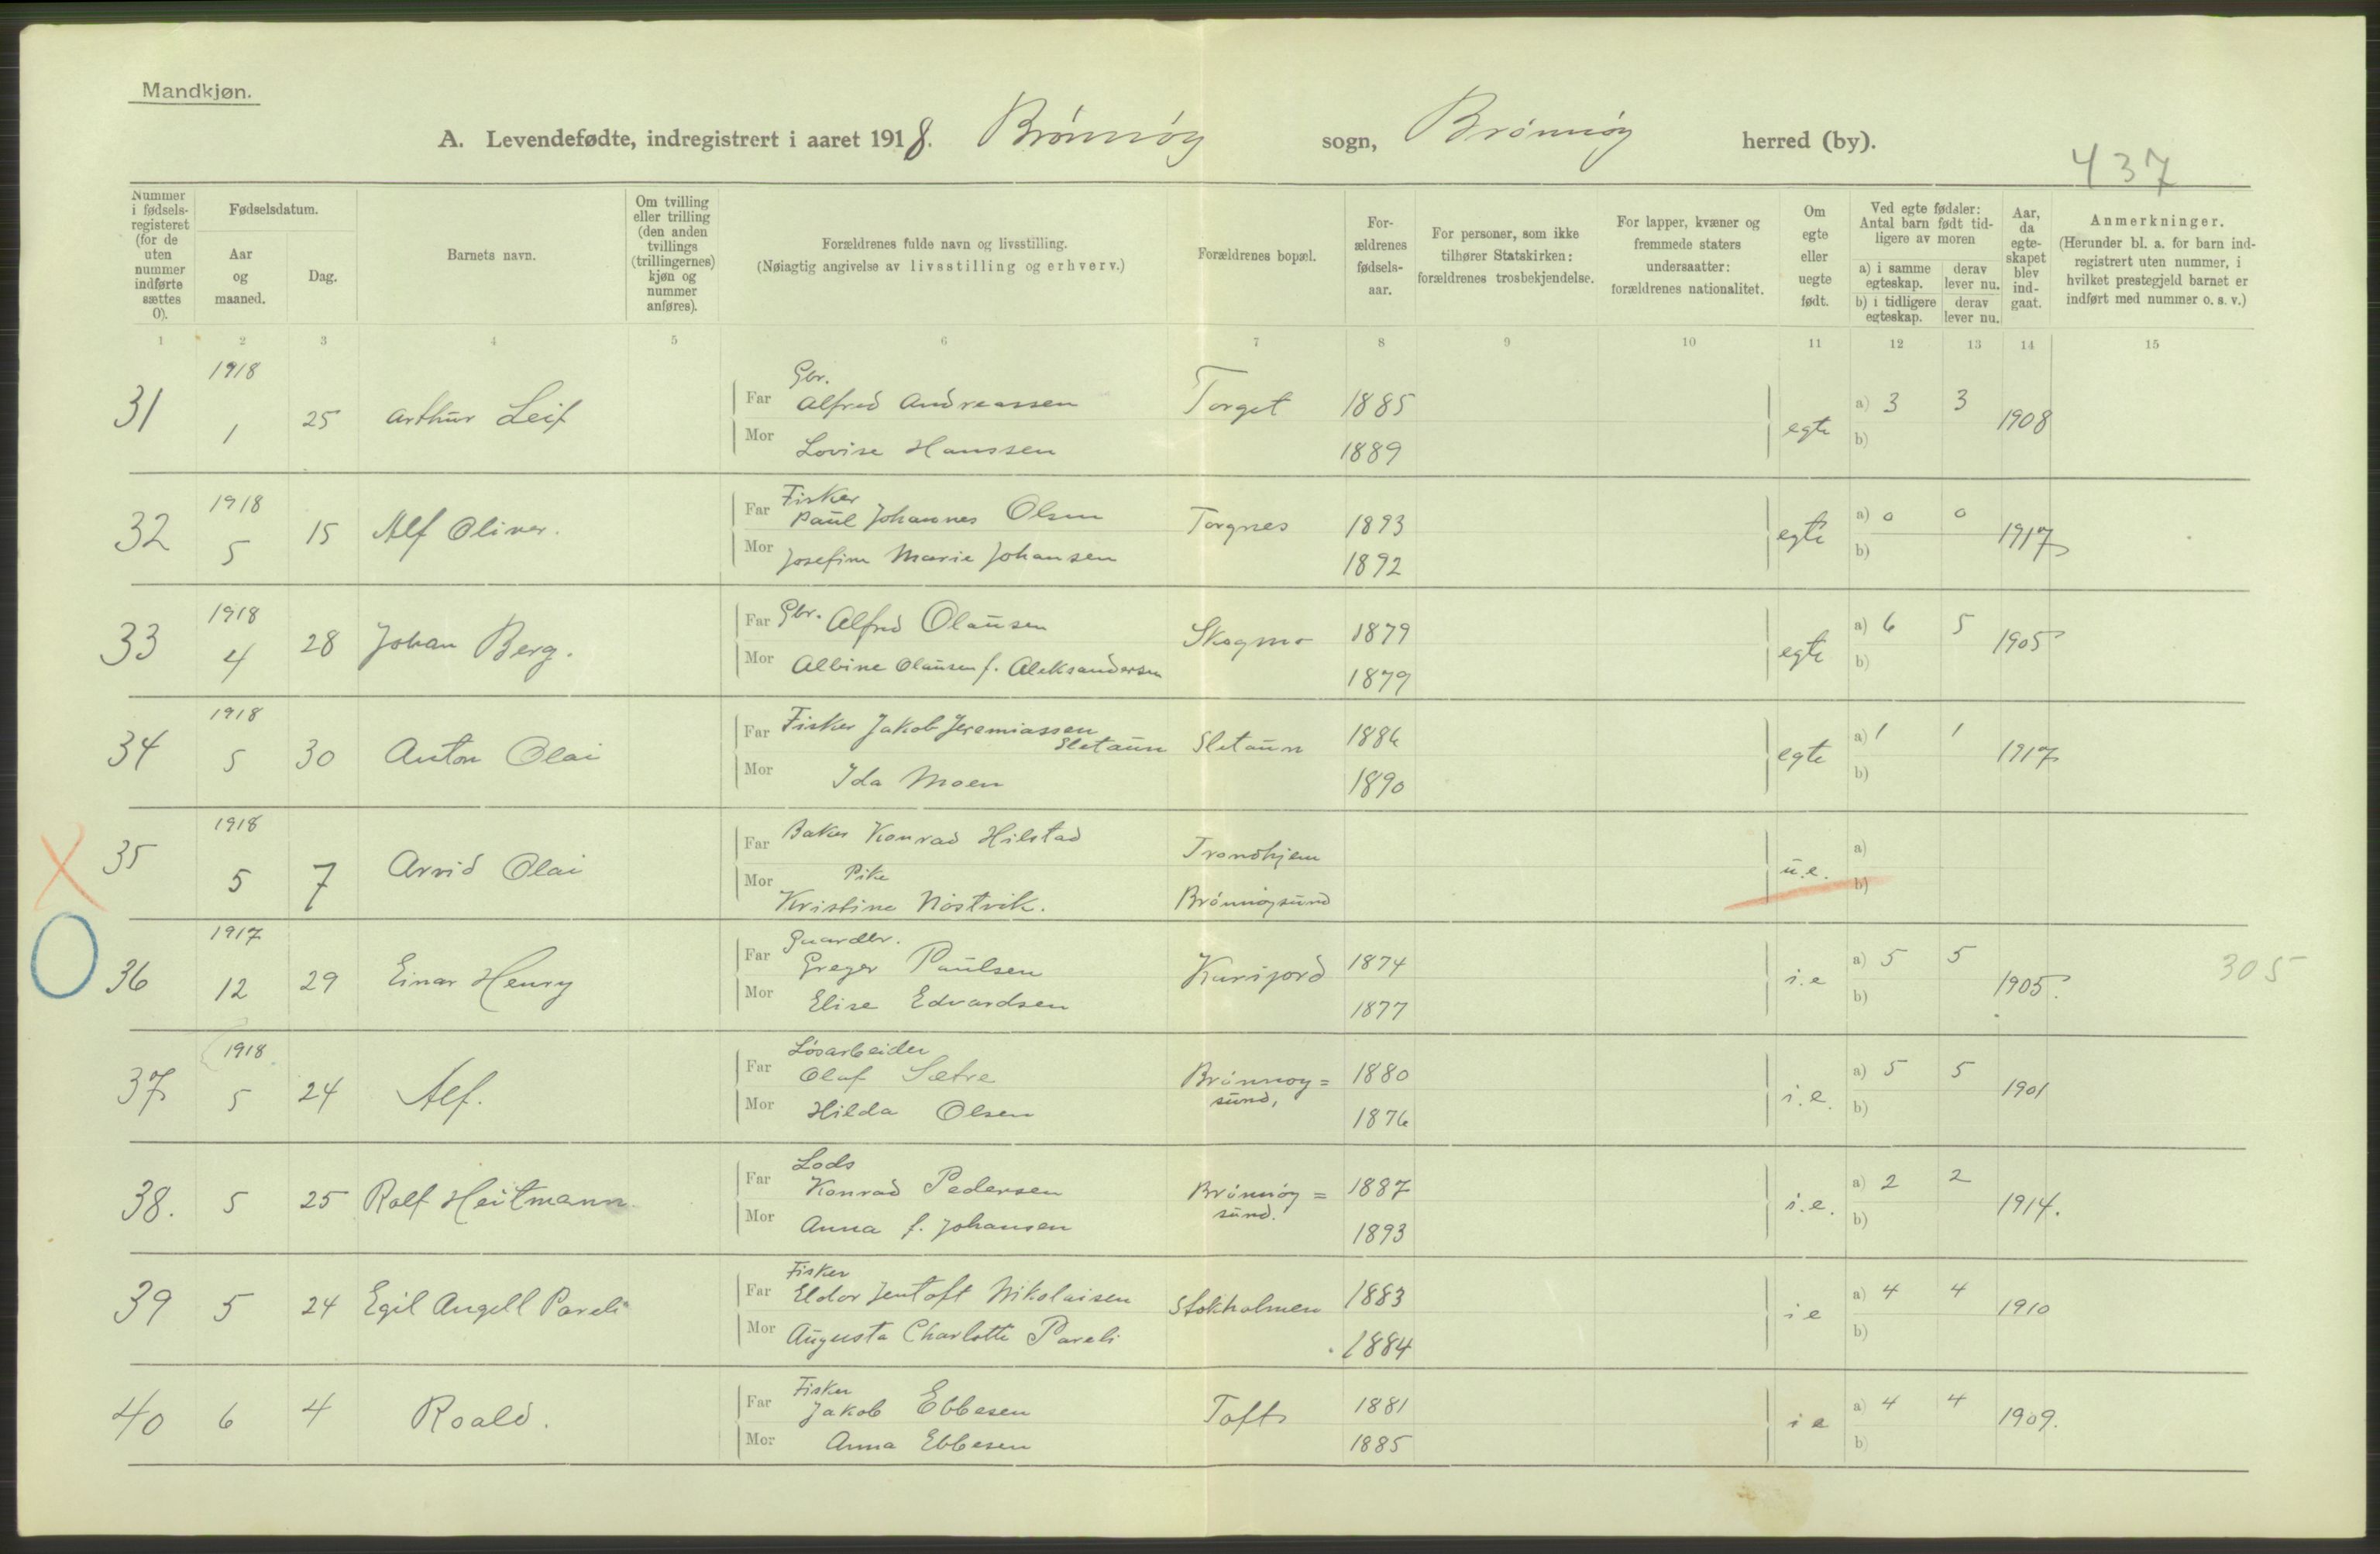 Mandkjøn.
A. Levendefødte, indregistrert i aaret 1918. Brønnøy sogn, Brønnøy herred (by).
437
Nummer i fødsels-registeret (for de uten nummer indførte sættes 0).
Fødselsdatum.
Aar og maaned.
Dag.
Barnets navn.
Om tvilling eller trilling (den anden tvillings (trillingernes) kjøn og nummer anføres).
Forældrenes fulde navn og livsstilling.
(Nøiagtig angivelse av livsstilling og erhverv.)
Forældrenes bopæl.
For-ældrenes fødsels-aar.
For personer, som ikke tilhører Statskirken: forældrenes trosbekjendelse.
For lapper, kvæner og fremmede staters undersaatter: forældrenes nationalitet.
Om egte eller uegte født.
Ved egte fødsler: Antal barn født tid-ligere av moren
a) i samme egteskap. derav lever nu.
b) i tidligere egteskap. derav lever nu.
Aar, da egte-skapet blev ind-gaat.
Anmerkninger.
(Herunder bl. a. for barn ind-registrert uten nummer, i hvilket prestegjeld barnet er indført med nummer o. s. v.)
1 2 3 4 5 6 7 8 9 10 11 12 13 14 15
1918 Gbr.
31 1 25 Arthur Leif Far Alfred Andreassen Torget 1885 egte a) 3 3 1908
Mor Lovise Hanssen 1889 b)
1918 Fisker
32 5 15 Alf Oliver. Far Paul Johannes Olsen Torgnes 1893 egte a) 0 0 1917
Mor Josefine Marie Johansen 1892 b)
1918
33 4 28 Johan Berg. Far Gbr. Alfred Olausen Skogmo 1879 egte a) 6 5 1905
Mor Albine Olausen f. Aleksandersen 1879 b)
1918
34 5 30 Anton Olai Far Fisker Jakob Jeremiassen Sletaun Sletaun 1886 egte a) 1 1 1917
Mor Ida Moen 1890 b)
1918
35 5 7 Arvid Olai Far Baker Konrad Hilstad Trondhjem u.e. a)
Mor Pike Kristine Nøstvik. Brønnøysund b)
1917 Gaardbr.
36 12 29 Einar Henry Far Greger Paulsen 1874 i.e a) 5 5 1905. 305
Mor Elise Edvardsen 1877 b)
1918 Løsarbeider
37 5 24 Alf. Far Olaf Sætre Brønnøy=sund, 1880 i.e. a) 5 5 1901
Mor Hilda Olsen 1876 b)
Lods
38. 5 25 Rolf Heitmann Far Konrad Pedersen Brønnøy=sund. 1887 i.e. a) 2 2 1914.
Mor Anna f. Johansen 1893 b)
Fisker
39 5 24 Egil Angell Pareli Far Eldor Jentoft Nikolaisen Stokholmen 1883 i e a) 4 4 1910
Mor Augusta Charlotte Pareli 1884 b)
Fisker
40 6 4 Roald. Far Jakob Ebbesen Toft 1881 i e a) 4 4 1909.
Mor Anna Ebbesen 1885 b)